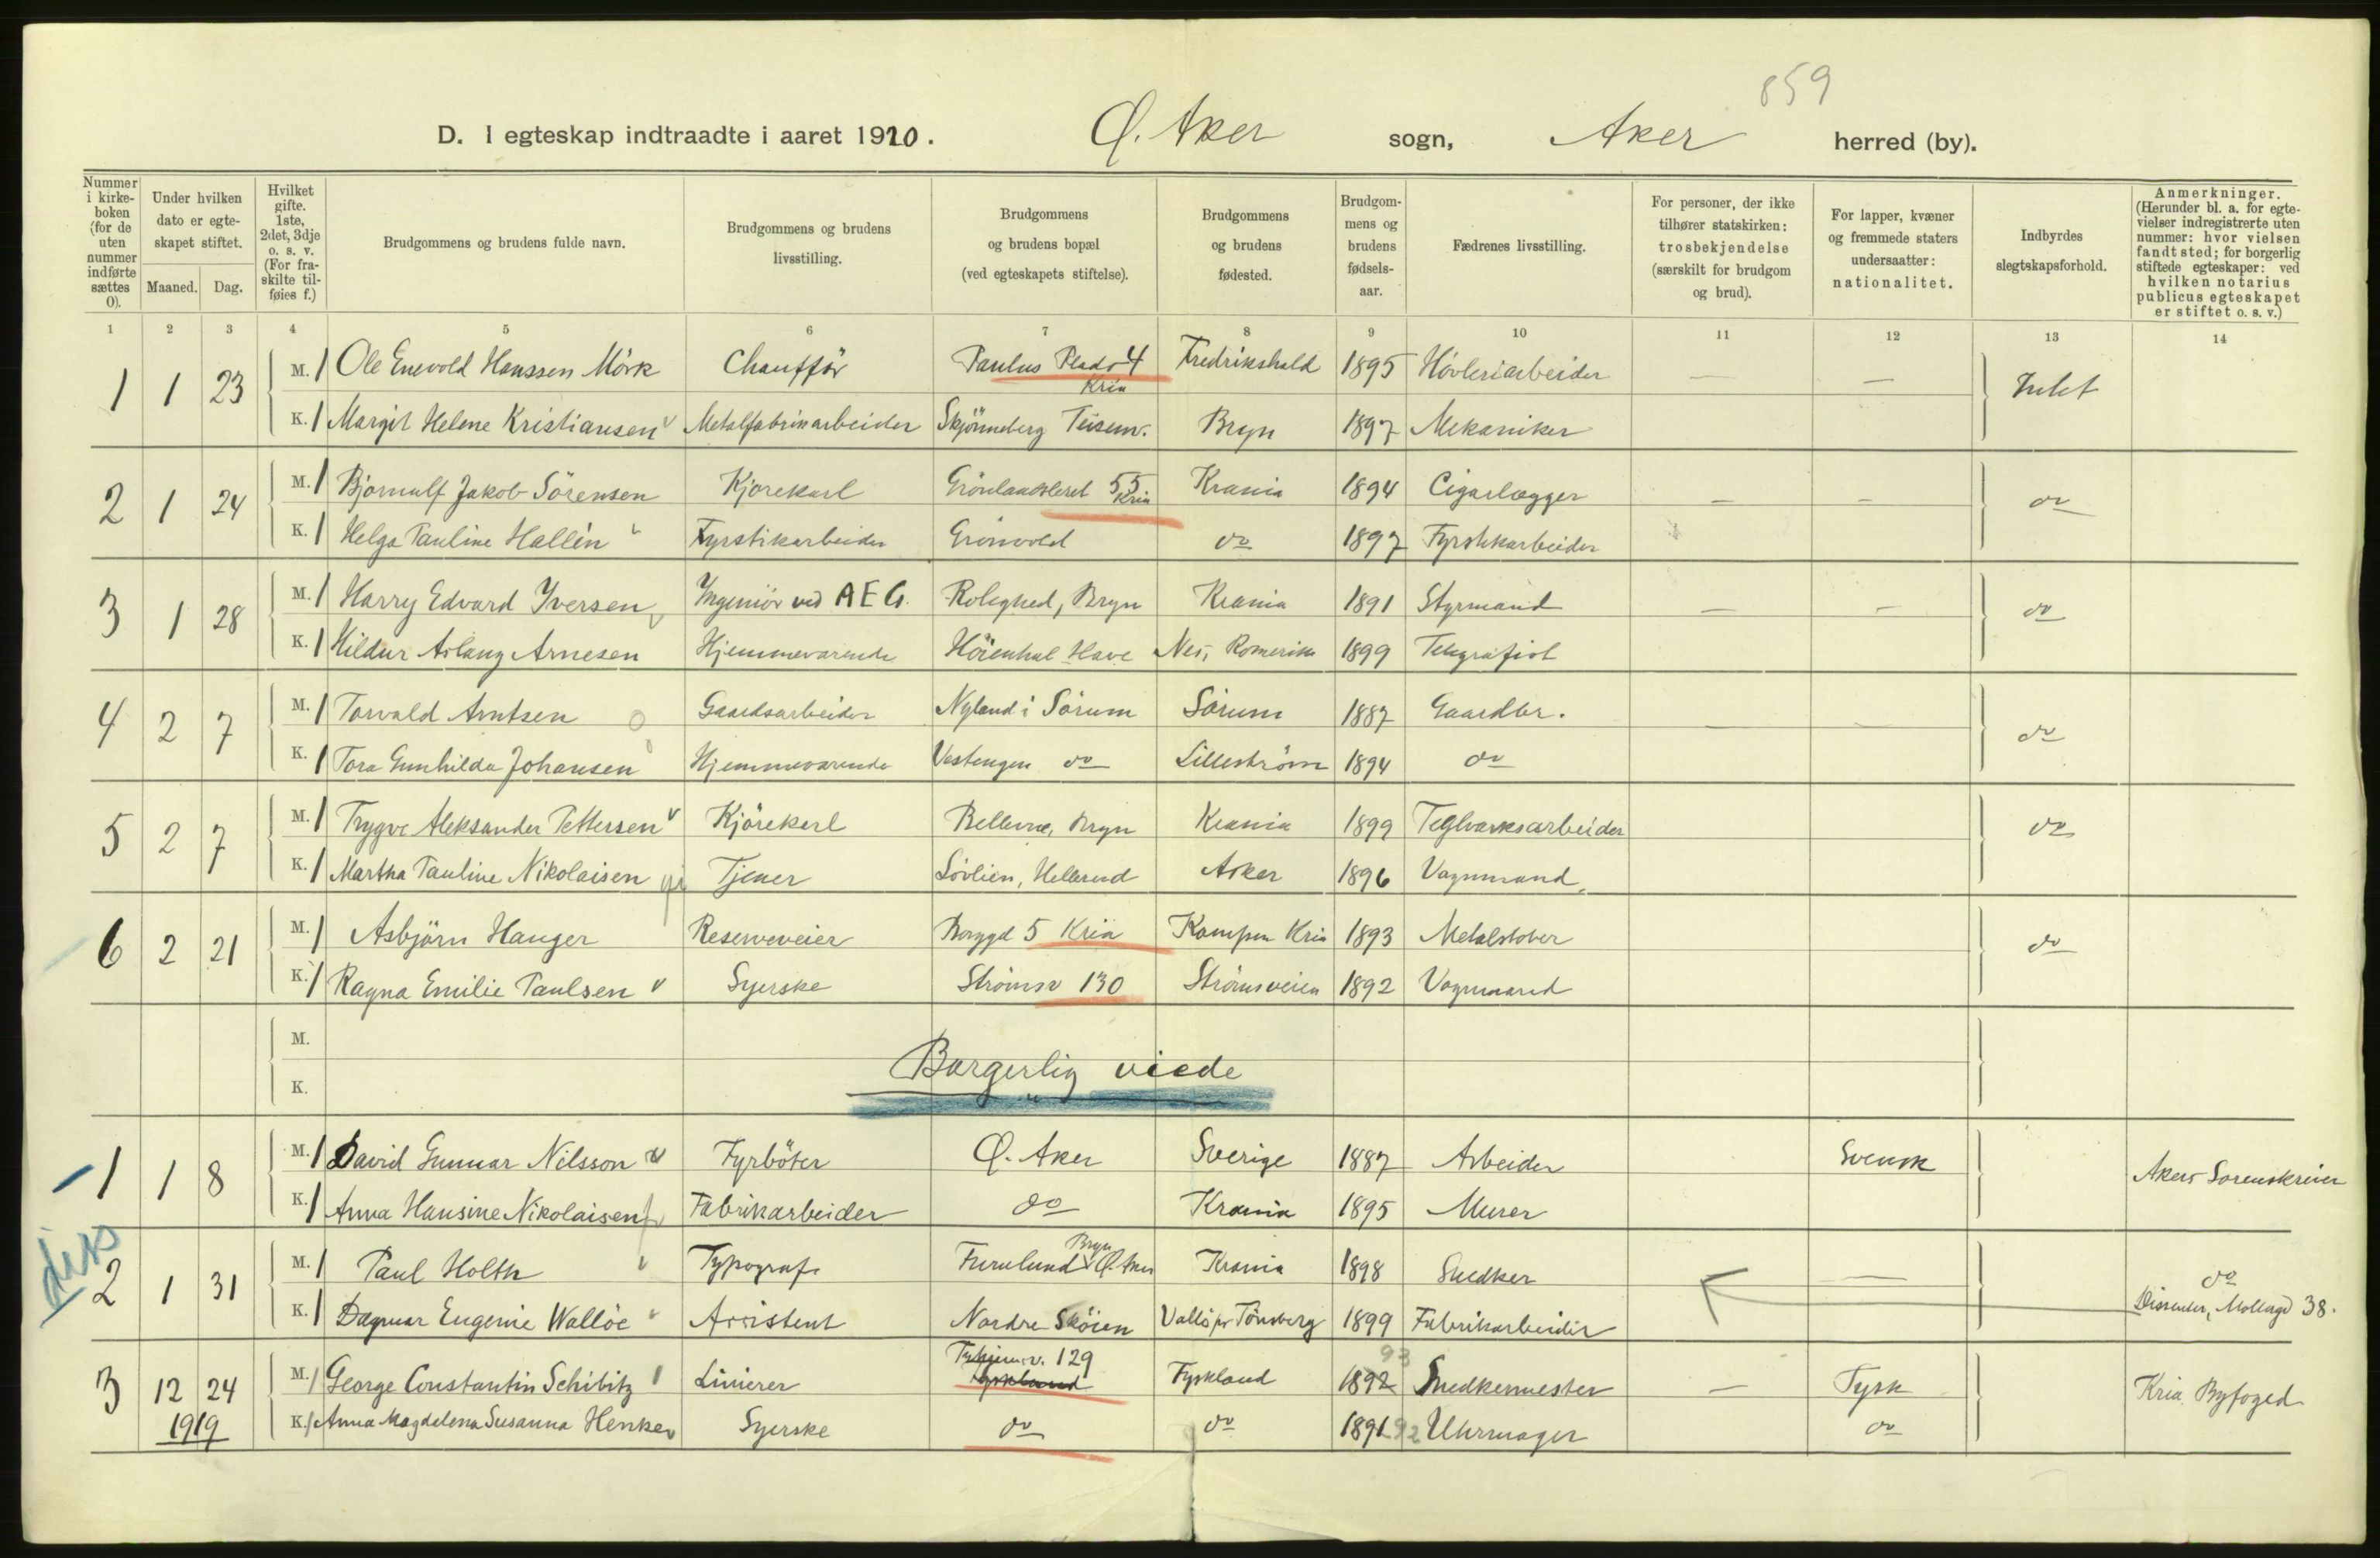 859
D. I egteskap indtraadte i aaret 1920. Ø. Aker sogn, Aker herred (by).
Nummer i kirkeboken (for de uten nummer indførte sættes 0).
Under hvilken dato er egteskapet stiftet.
Maaned. Dag.
Hvilket gifte. 1ste, 2det, 3dje o. s. v. (For fraskilte tilføies f.)
Brudgommens og brudens fulde navn.
Brudgommens og brudens livsstilling.
Brudgommens og brudens bopæl (ved egteskapets stiftelse).
Brudgommens og brudens fødested.
Brudgommens og brudens fødselsaar.
Fædrenes livsstilling.
For personer, der ikke tilhører statskirken: trosbekjendelse (særskilt for brudgom og brud).
For lapper, kvæner og fremmede staters undersaatter: nationalitet.
Indbyrdes slegtskapsforhold.
Anmerkninger. (Herunder bl. a. for egtevielser indregistrerte uten nummer: hvor vielsen fandt sted; for borgerlig stiftede egteskaper: ved hvilken notarius publicus egteskapet er stiftet o. s. v.)
1 2 3 4 5 6 7 8 9 10 11 12 13 14
1 1 23 M. 1 Ole Enevold Hanssen Mörk Chaufför Paulus Plads 4 Kria Fredrikshald 1895 Hövleriarbeider — — Intet
K. 1 Margit Helene Kristiansen Metalfabrikarbeider Skjönneberg Teisenv. Bryn 1897 Mekaniker
2 1 24 M. 1 Bjornulf Jakob Sörensen Kjörekarl Grönlandsleret 55 Kria Krania 1894 Cigarlægger — — do
K. 1 Helga Pauline Hallén Fyrstikarbeider Grönvold do 1897 Fyrstikarbeider
3 1 28 M. 1 Harry Edvard Iversen Ingeniör ved AEG. Rolighed, Bryn Krania 1891 Styrmand — — do
K. 1 Hildur Aslaug Arnesen Hjemmeværende Höienhal Have Nes, Romerike 1899 Telegrafist
4 2 7 M. 1 Torvald Arntsen Gaardsarbeider Nyland i Sörum Sörum 1887 Gaardbr. — — do
K. 1 Tora Gunhilda Johansen Hjemmeværende Vestengen do Lilleström 1894 do
5 2 7 M. 1 Trygve Aleksander Pettersen Kjörekarl Bellevue, Bryn Krania 1899 Teglværksarbeider do
K. 1 Martha Pauline Nikolaisen Tjener Lövlien, Hellerud Asker 1896 Vognmand
6 2 21 M. 1 Asbjörn Hauger Reserveveier Borggd 5 Kria Kampen Kria 1893 Metalstöber do
K. 1 Ragna Emilie Paulsen Syerske Strömsv 130 Strömsveien 1892 Vognmand
M.
Borgerlig viede
K.
1 1 8 M. 1 David Gunnar Nilsson Fyrböter Ø. Aker Sverige 1887 Arbeider Svensk Akers Sorenskriver
K. 1 Anna Hansine Nikolaisen Fabrikarbeider do Krania 1895 Murer
diss
2 1 31 M. 1 Paul Holth Typograf Furulund Bryn Ø. Aker Krania 1898 Snedker — do
K. 1 Dagmar Eugenie Wallöe Assistent Nordre Sköien Vallö pr Tönsberg 1899 Fabrikarbeider Dissenter, Mollergd 38.
3 12 24 M. 1 George Constantin Schibitz Linierer 129 Tyskland Tyskland 1892 93 Snedkermester — Tysk Kria Byfoged
1919 K. 1 Anna Magdalena Susanna Henker Syerske do do 1891 92 Uhrmager do